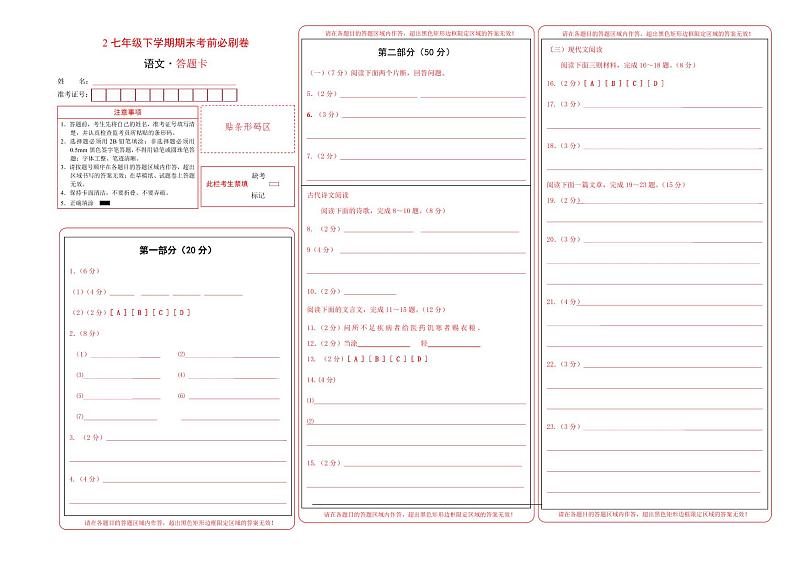 2 七年级下学期期末考前必刷卷
语文·答题卡
姓 名：
准考证号：
注意事项
1．答题前，考生先将自己的姓名，准考证号填写清楚，并认真检查监考员所粘贴的条形码。
2．选择题必须用 2B 铅笔填涂；非选择题必须用 0.5mm 黑色签字笔答题，不得用铅笔或圆珠笔答题；字体工整、笔迹清晰。
3．请按题号顺序在各题目的答题区域内作答，超出区域书写的答案无效；在草稿纸、试题卷上答题无效。
4．保持卡面清洁，不要折叠、不要弄破。
5．正确填涂
贴条形码区
此栏考生禁填
缺考
标记
第一部分（20 分）
1.（6 分）
(1)（4 分）
(2)（2 分）[ A ] [ B ] [ C ] [ D ]
2.（8 分）
(1) (2)
(3) (4)
(5) (6)
(7)
3. （2 分）
4.（4 分）
请在各题目的答题区域内作答，超出黑色矩形边框限定区域的答案无效！
请在各题目的答题区域内作答，超出黑色矩形边框限定区域的答案无效！
第二部分（50 分）
（一）（7 分）阅读下面两个片断，回答问题。
5.（2 分）
6. （3 分）
7.（2 分）
古代诗文阅读
阅读下面的诗歌，完成 8～10 题。（8 分）
8. （2 分）
9（4 分）
10.（2 分）
阅读下面的文言文，完成 11～15 题。（12 分）
11.（2 分）问 所 不 足 疾 病 者 给 医 药 饥 寒 者 赐 衣 粮 。
12.（2 分）当涂 轻
13. （2 分）[ A ] [ B ] [ C ] [ D ]
14.(4 分)
(1)
(2)
15.（2 分）
请在各题目的答题区域内作答，超出黑色矩形边框限定区域的答案无效！
请在各题目的答题区域内作答，超出黑色矩形边框限定区域的答案无效！
（三）现代文阅读
阅读下面三则材料，完成 16～18 题。（8 分）
16.（2 分）[ A ] [ B ] [ C ] [ D ]
17.（3 分）
18.（3 分）
阅读下面一篇文章，完成 19～23 题。（15 分）
19.（2 分）
20.（3 分）
21.（4 分）
22.（3 分）
23.（3 分）
请在各题目的答题区域内作答，超出黑色矩形边框限定区域的答案无效！